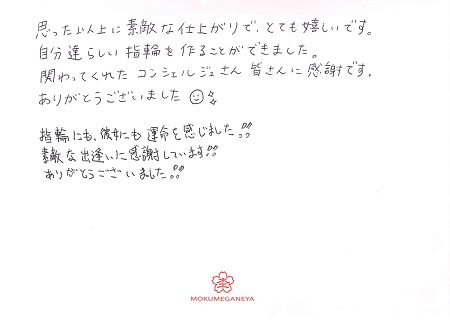 思った以上に素敵な仕上がりで、とても嬉しいです。
自分達らしい指輪を作ることができました。
関わってくれた コンシェルジュさん 皆さんに感謝です。
ありがとうございました
指輪にも、彼女にも 運命を感じました!!
素敵な出逢いに感謝しています!!
ありがとうございました!!
MOKUMEGANEYA